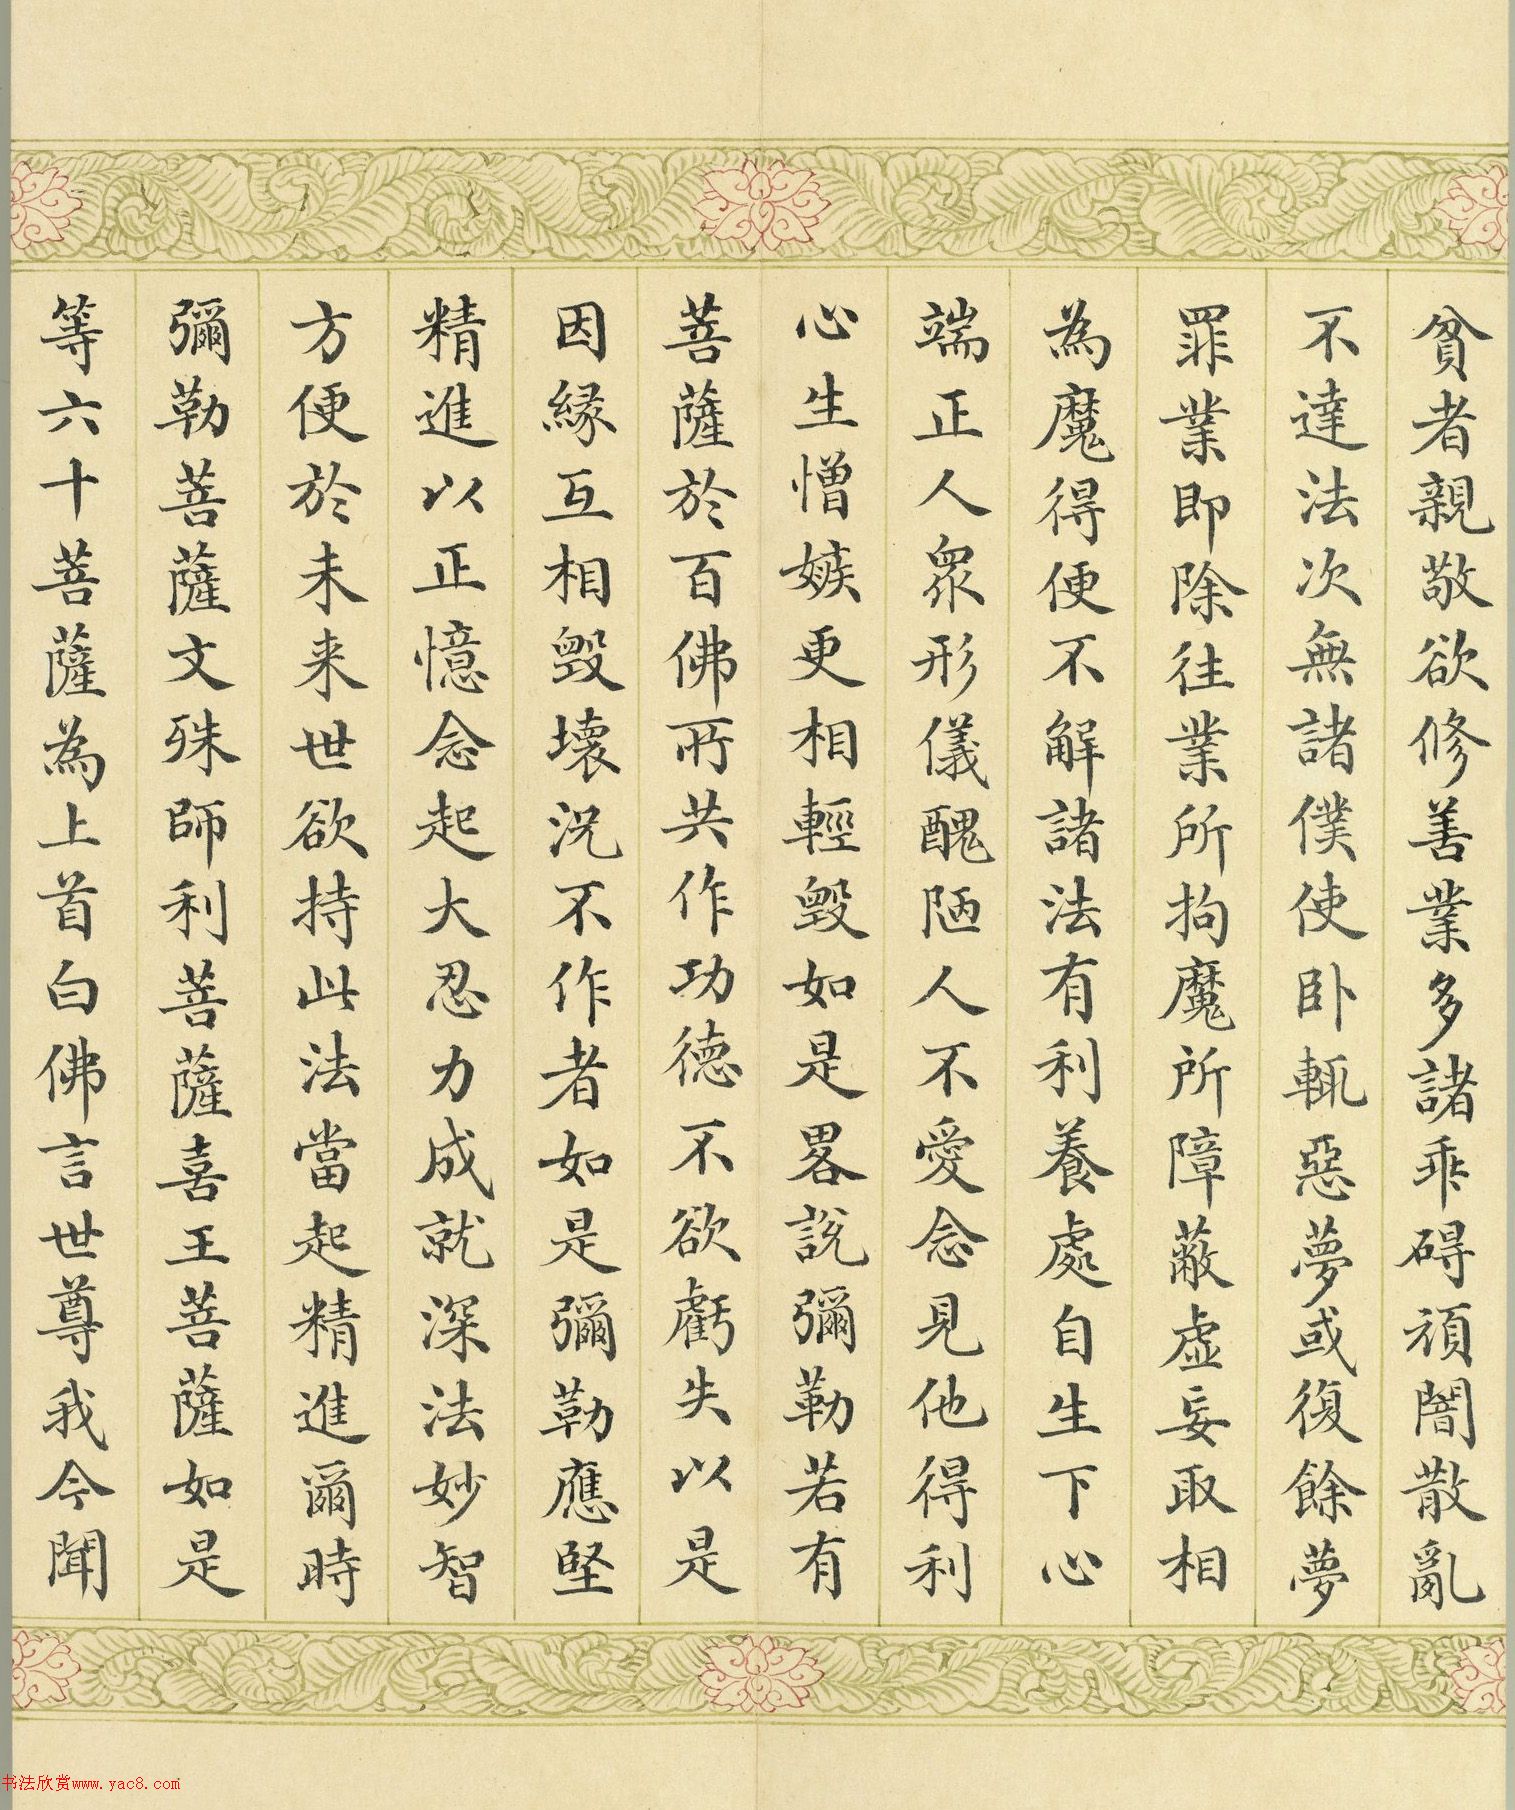 貧者親敬欲修善業多諸乖碍頑闇散亂
不達法次無諸僕使卧輒惡夢或復餘夢
罪業即除往業所拘魔所障蔽虛妄取相
為魔得便不解諸法有利養處自生下心
端正人衆形儀醜陋人不愛念見他得利
心生憎嫉更相輕毀如是畧説彌勒若有
菩薩於百佛所共作功德不欲虧失以是
因縁互相毀壞況不作者如是彌勒應堅
精進以正憶念起大忍力成就深法妙智
方便於未来世欲持此法當起精進爾時
彌勒菩薩文殊師利菩薩喜王菩薩如是
等六十菩薩為上首白佛言世尊我今聞
书法欣赏www.yac8.com